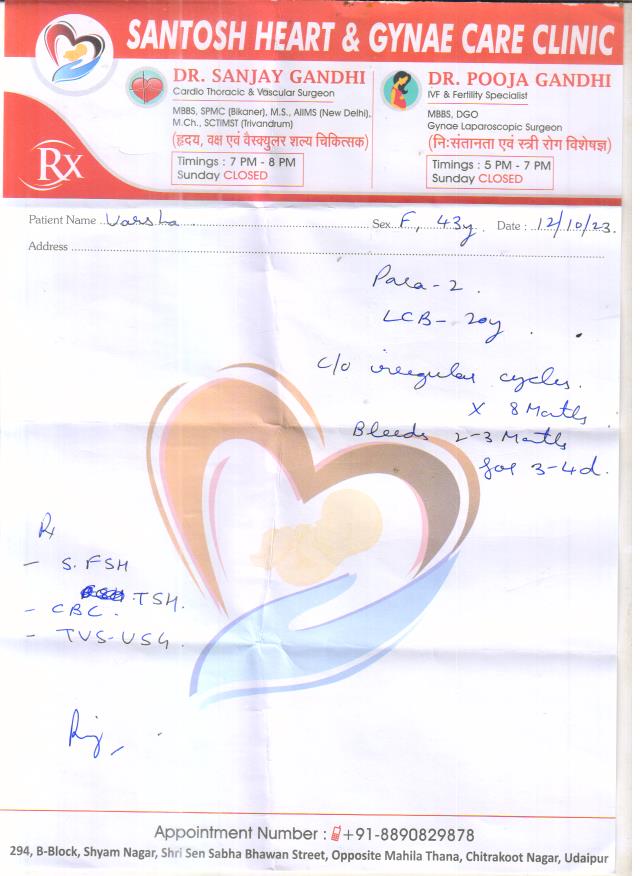 SANTOSH HEART & GYNAE CARE CLINIC
DR. SANJAY GANDHI
Cardio Thoracic & Vascular Surgeon
MBBS, SPMC (Bikaner), M.S., AIIMS (New Delhi),
M.Ch., SCTIMST (Trivandrum)
(हृदय, वक्ष एवं वैस्क्युलर शल्य चिकित्सक)
Timings : 7 PM - 8 PM
Sunday CLOSED
DR. POOJA GANDHI
IVF & Fertility Specialist
MBBS, DGO
Gynae Laparoscopic Surgeon
(नि:संतानता एवं स्त्री रोग विशेषज्ञ)
Timings : 5 PM - 7 PM
Sunday CLOSED
Rx
Patient Name Varsha Sex F, 43y Date : 12/10/23
Address
Para - 2.
LCB - 20y
c/o irregular cycles.
x 8 Months
Bleeds 2-3 Months
for 3-4d.
Rx
- S. FSH
TSH.
- CBC.
- TVS-USG.
Appointment Number : +91-8890829878
294, B-Block, Shyam Nagar, Shri Sen Sabha Bhawan Street, Opposite Mahila Thana, Chitrakoot Nagar, Udaipur